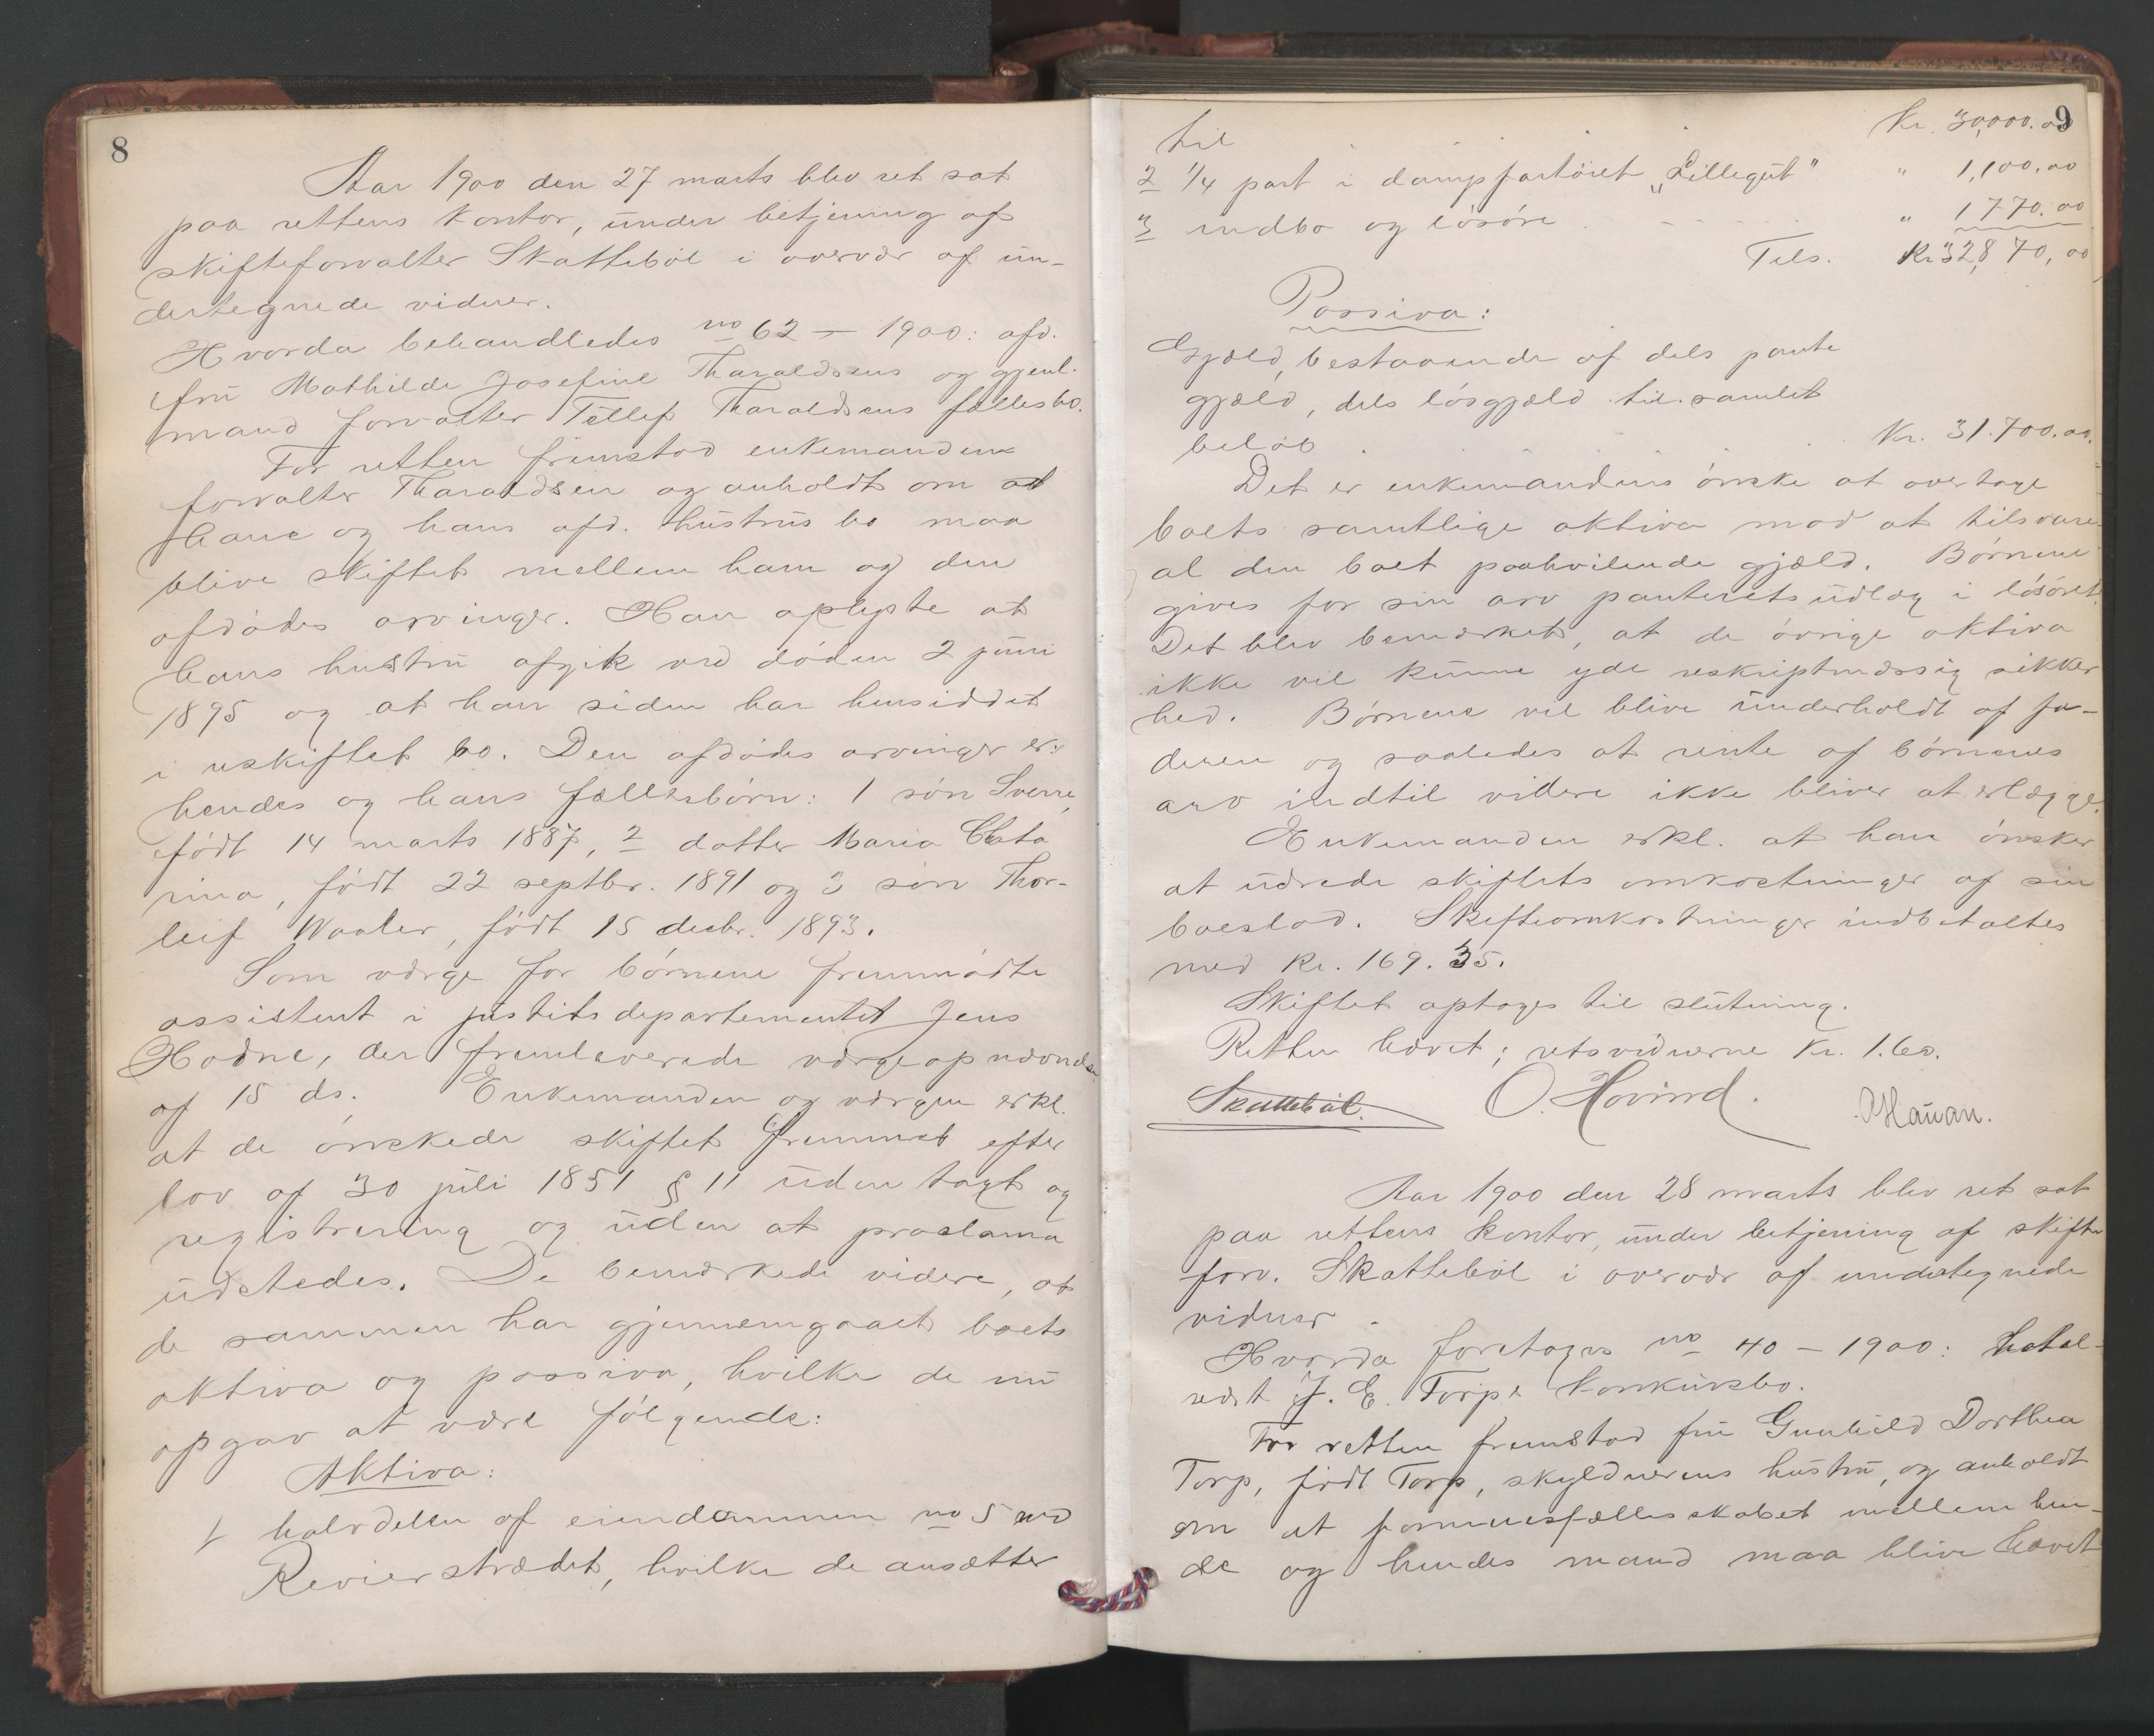 8
Aar 1900 den 27 marts blev ret sat
paa rettens kontor, under betjening af
skifteforvalter Skattebøl i overvær af un-
dertegnede vidner.
Hvorda behandledes no 62 – 1900: afd.
fru Mathilde Josefine Tharaldsens og gjenl.
mand forvalter Tellef Tharaldsens fællesbo.
For retten fremstod enkemanden
forvalter Tharaldsen og anholdt om at
hans og hans afd. hustrus bo maa
blive skiftet mellem ham og den
afdødes arvinger. Han oplyste at
hans hustru afgik ved døden 2 juni
1895 og at han siden har hensiddet
i uskiftet bo. Den afdødes arvinger er:
hendes og hans fællesbørn: 1 søn Sverre,
født 14 marts 1887, 2 datter Maria Cata
rina, født 22 septbr. 1891 og 3 søn Thor-
leif Waaler, født 15 decbr. 1893.
Som værge for børnene fremmødte
assistent i justitsdepartementet Jens
Hodne, der fremleverede værgeopnævnelse
af 15 ds. Enkemanden og værgen erkl.
at de ønskede skiftet fremmet efter
lov af 30 juli 1851 § 11 uden taxt og
registrering og uden at proclama
udstedes. De bemærkede videre, at
de sammen har gjennemgaaet boets
aktiva og passiva, hvilke de nu
opgav at være følgende:
Aktiva:
1 halvdelen af eiendommen no 5 ved
Revierstrædet, hvilke de ansætter
9
til Kr. 30,000.00
2 1/4 part i dampfartøiet „Lillegut" " 1,100.00
3 indbo og løsøre " 1770.00
Tils. Kr 32,870,00
Passiva:
Gjæld, bestaaende af dels pante
gjæld, dels løsgjæld til samlet
beløb Kr. 31.700.00.
Det er enkemandens ønske at overtage
boets samtlige aktiva mod at tilsvare
al den boet paahvilende gjæld. Børnene
gives for sin arv panteretsudlæg i løsøret.
Det blev bemærket, at de øvrige aktiva
ikke vil kunne yde reskriptmæssig sikker
hed. Børnene vil blive underholdt af fa-
deren og saaledes at rente af børnenes
arv indtil videre ikke bliver at erlægge.
Enkemanden erkl. at han ønsker
at udrede skiftets omkostninger af sin
boeslod. Skifteomkostninger indbetaltes
med Kr. 169.35.
Skiftet optages til slutning.
Retten hævet; retsvidnerne Kr. 1.60.
Skattebøl. O. Hovind. Hauan.
Aar 1900 den 28 marts blev ret sat
paa rettens kontor, under betjening af skifte
forv. Skattebøl i overvær af undertegnede
vidner.
Hvorda foretages no 40 – 1900: hotel-
vært J. E. Torps konkursbo.
For retten fremstod fru Gunhild Dorthea
Torp, født Torp, skyldnerens hustru, og anholdt
om at formuesfællesskabet mellem hen-
de og hendes mand maa blive hævet